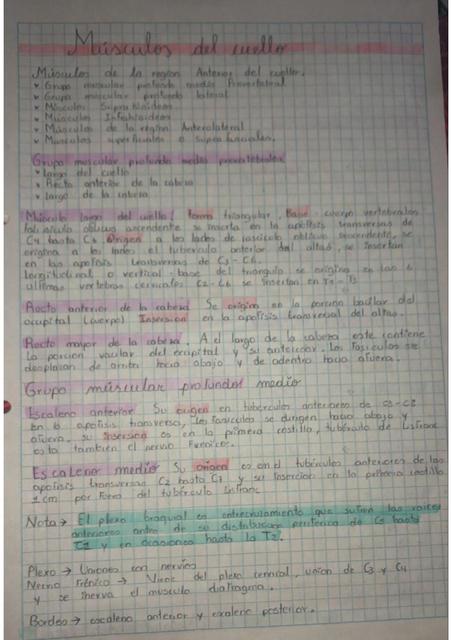 Músculos del cuello
Músculos de la region Anterior del cuello.
Grupo muscular profundo medio Prevertebral
Grupo muscular profundo lateral
Músculos Suprahioideos
Músculos Infrahioideos
Músculos de la región Anterolateral
Musculos superficiales o Superficiales.
Grupo muscular profundo medio prevertebrales
largo del cuello
Recto anterior de la cabeza
largo de la cabeza
Músculo largo del cuello/ forma triangular, Base cuerpo vertebrales
fasciculo oblicuo ascendente se inserta en la apofisis transversas de
C4 hasta C6 Origen a los lados de fasciculo oblicuo descendente, se
origina a los lados el tubérculo anterior del atlas, se insertan
en las apofisis transversas de C3 - C6.
longitudinal o vertical - base del triangulo se origina en las 6
ultimas vertebras cervicales C2-C6 se insertan en T1 - T3
Recto anterior de la cabeza Se origina en la porción basilar del
occipital (cuerpo) Insercion en la apofisis transversal del atlas.
Recto mayor de la cabeza. A el largo de la cabeza este contiene
la porcion del occipital y su anterior. Los fasciculos se
desplazan de arriba hacia abajo y de adentro hacia afuera.
Grupo múscular profundos medio
Escaleno anterior Su origen en tuberculos anteriores de C3-C6
En 6 apofisis transversa, Los fasciculos se dirigen hacia abajo y
afuera, su insercion es en la primera costilla, tubérculo de Lisfranc
esta tambien el nervio Frenico.
Escaleno medio Su origen es en el tubérculos anteriores de las
apofisis transversas C2 hasta C7 y su insercion en la primera costilla
1 cm por fuera del tubérculo lisfranc
Nota → El plexo braquial es entrecruzamiento que sufren las raices
anteriores antes de su distribucion periferica de C5 hasta
T1 y en ocaciones hasta la T2.
Plexo → Uniones con nervios
Nervio frénico → Viene del plexo cervical, union de C3 y C4
y se inerva el musculo diafragma.
Bordeo → escaleno anterior y escaleno posterior.